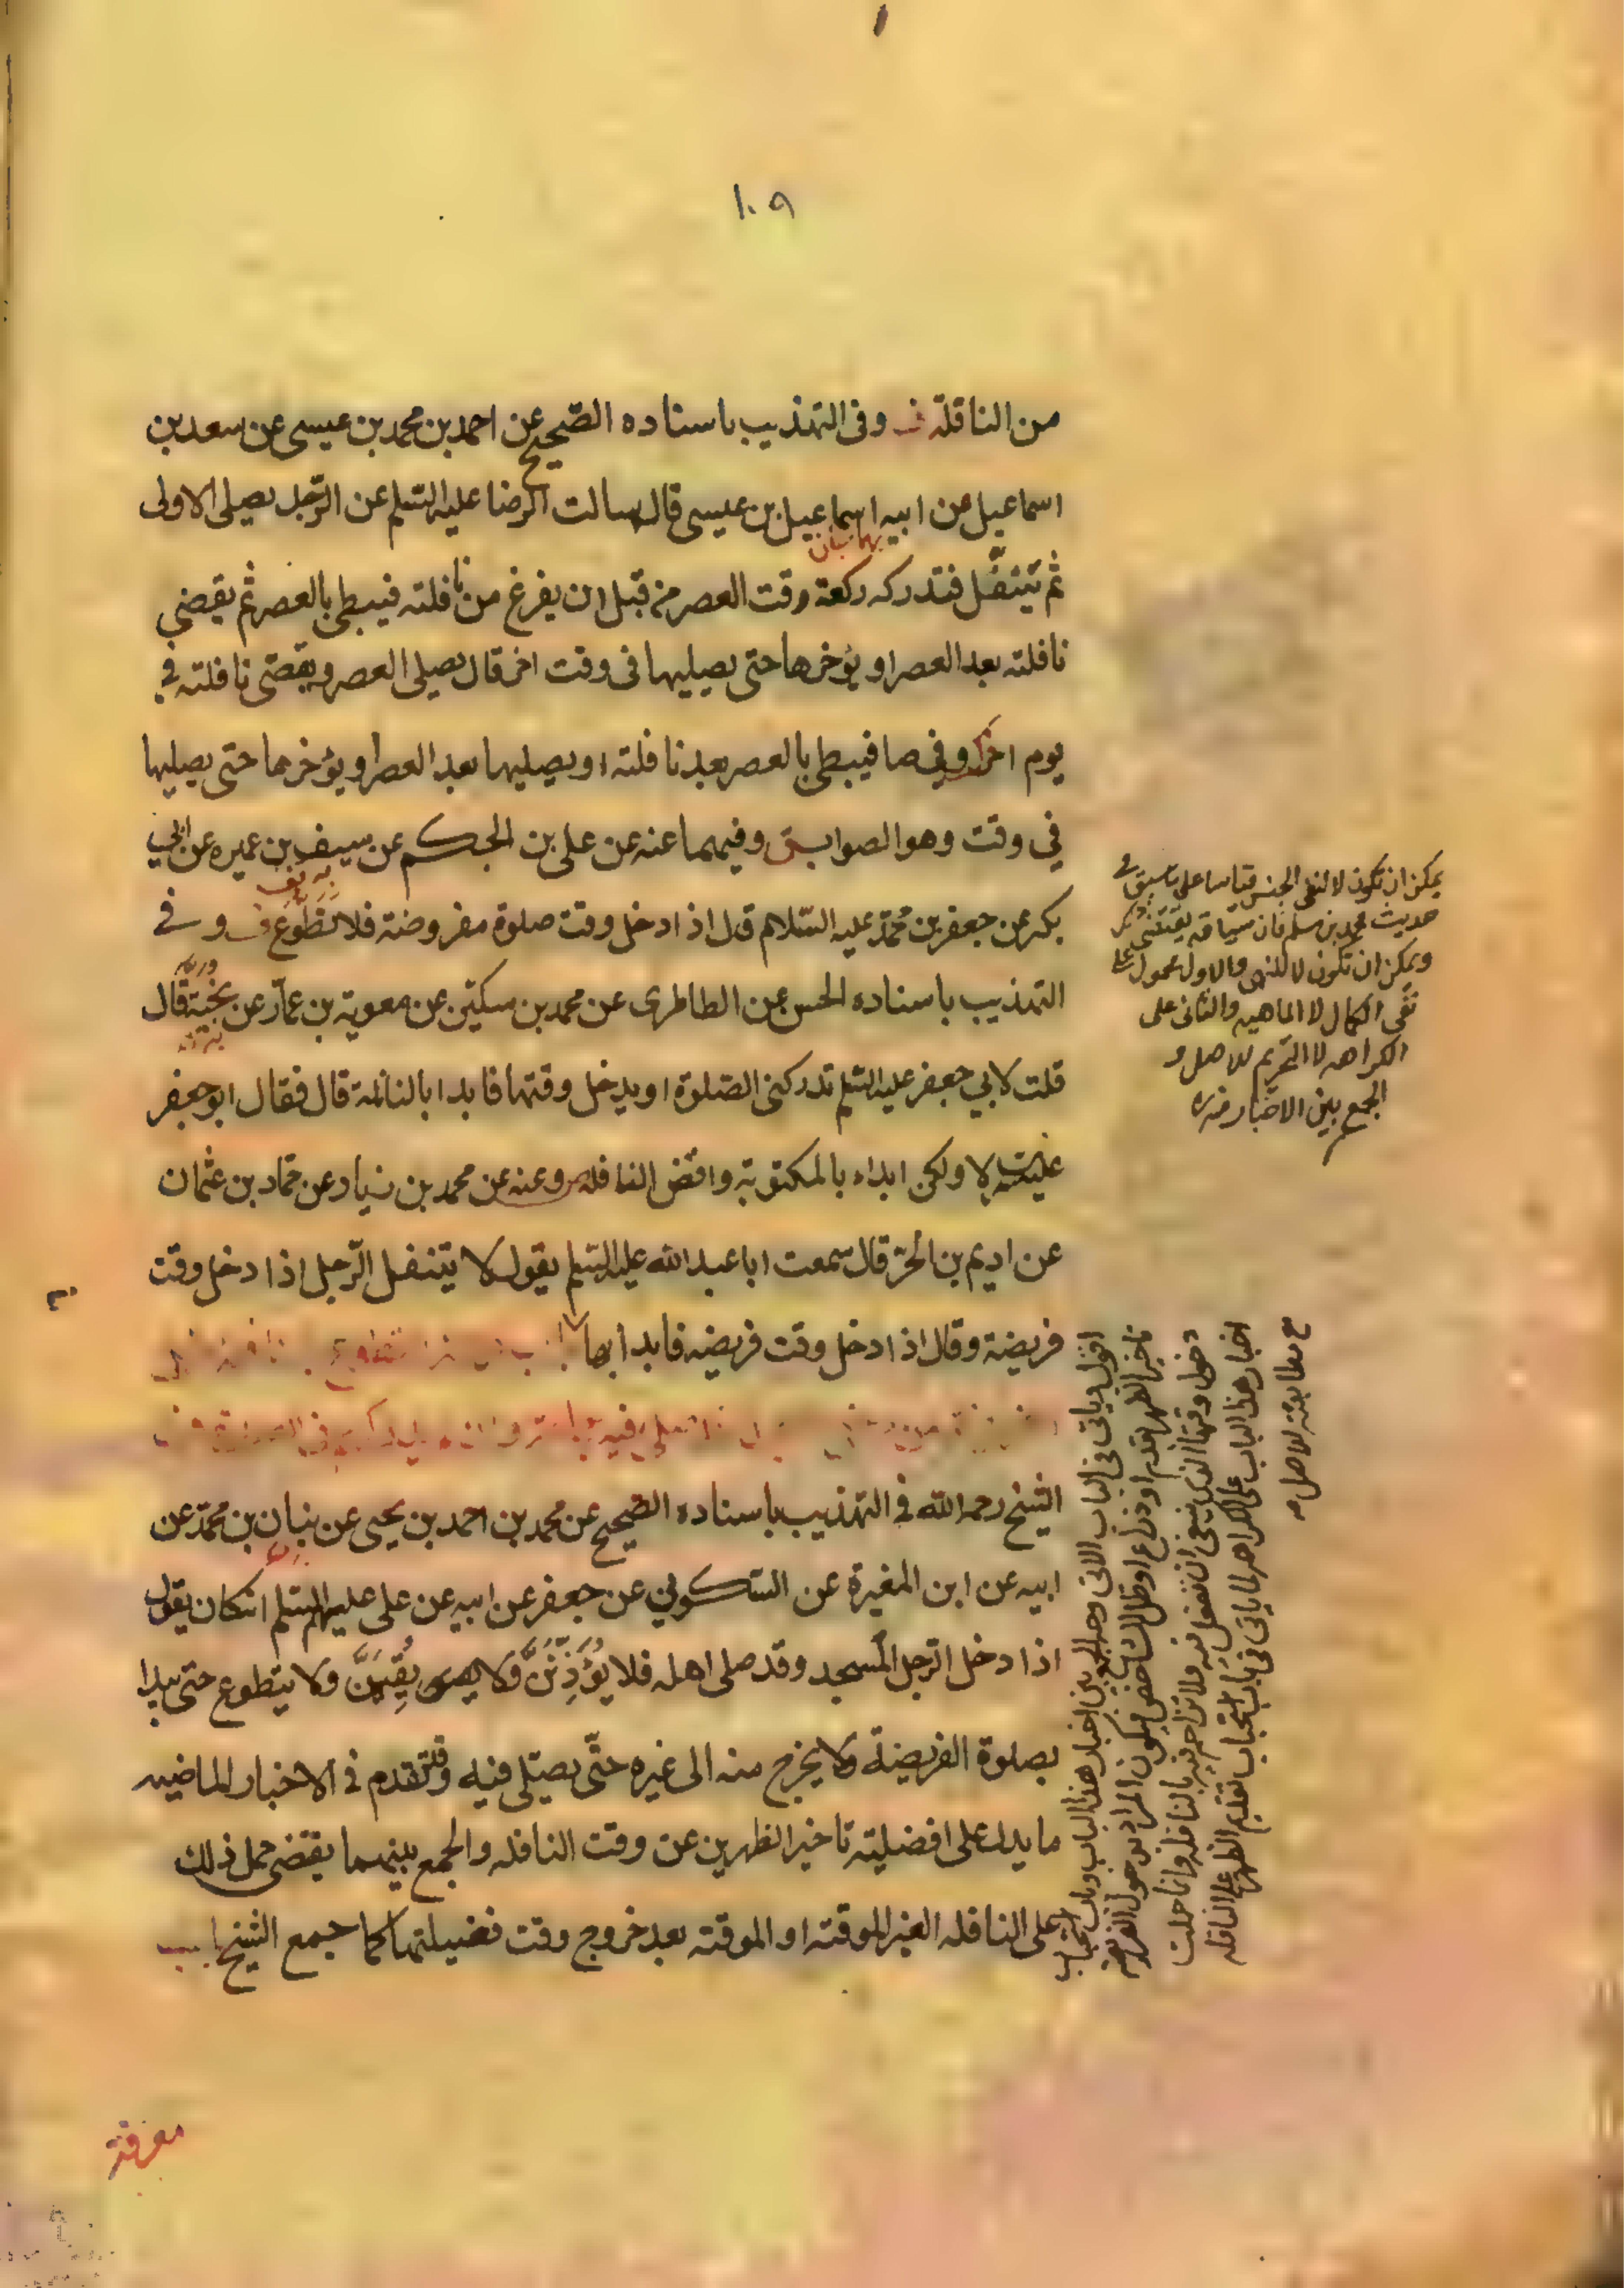 ١٠٩
من النافلة ف وفى التهذيب باسناده الصّحيح عن احمد بن محمد بن عيسى عن سعد بن
اسماعيل عن ابيه اسماعيل بن عيسى قال سالت الرضا عليه السّلم عن الرّجل يصلى الاولى
ثم يتنفّل فتدركه ركعة وقت العصر من قبل ان يفرغ من نافلته فيبطى بالعصر ثم يقضى
نافلته بعد العصر او يؤخرها حتى يصليها فى وقت اخر قال يصلى العصر ويقضى نافلته في
يوم اخر وفي صا فيبطى بالعصر بعد نافلته او يصليها بعد العصر او يؤخرها حتى يصليها
في وقت وهو الصواب وفيهما عنه عن على بن الحكم عن سيف بن عميره عن ابي
بكر عن جعفر بن محمّد عليه السّلام قال اذا دخل وقت صلوة مفروضة فلا تطوّع وفي
التهذيب باسناده الحسن عن الطاطرى عن محمد بن سكين عن معوية بن عمار عن نجيّة قال
قلت لابي جعفر عليه السّلم تدركنى الصّلوة او يدخل وقتها فابدا بالنافلة قال فقال ابو جعفر
عليه السلم لا ولكن ابداء بالمكتوبة واقض النافله وعنه عن محمد بن زياد عن حمّاد بن عثمان
عن اديم بن الحرّ قال سمعت ابا عبدالله عليه السّلم يقول لا يتنفل الرّجل اذا دخل وقت
فريضة وقال اذا دخل وقت فريضه فابدا بها
الشيخ رحمه الله في التهذيب باسناده الصّحيح عن محمد بن احمد بن يحيى عن بنان بن محمّد عن
ابيه عن ابن المغيرة عن السّكوني عن جعفر عن ابيه عن على عليهم السّلم انه كان يقول
اذا دخل الرّجل المسجد وقد صلى اهله فلا يؤذّننّ ولا يقيمنّ ولا يتطوع حتى يبدا
بصلوة الفريضة ولا يخرج منه الى غيره حتّى يصلّى فيه وقد تقدم في الاخبار الماضيه
ما يدل على افضليته تاخير الظهرين عن وقت النافله والجمع بينهما يقتضى حمل ذلك
على النافله الغير الموقته او الموقته بعد خروج وقت فضيلتها كما جمع الشيخ باب
يمكن ان تكون لا لنفى الجنس قياسا على ما سبق في
حديث محمد بن مسلم فان سياقه يقتضى ذلك
ويمكن ان تكون لا للنهى والاول محمول على
نفى الكمال لا الماهيه والثانى على
الكراهه لا التحريم للاصل و
الجمع بين الاخبار منه ره
اقول وياتى فى الباب الاتى وجه الجمع بين اخبار هذا الباب وباب استحباب
تاخير الظهر قدم او ذراع او ظل الشاخص فيكون المراد بدخول الفريضة
دخول وقتها الذى ينبغى ان تفعل فيه فلا تزاحم فيه بالنافله وانما حملت
اخبار هذا الباب على الكراهه لما ياتى فى باب استحباب تقديم الظهر على النافله
مع مطابقته للاصل منه
معرفة